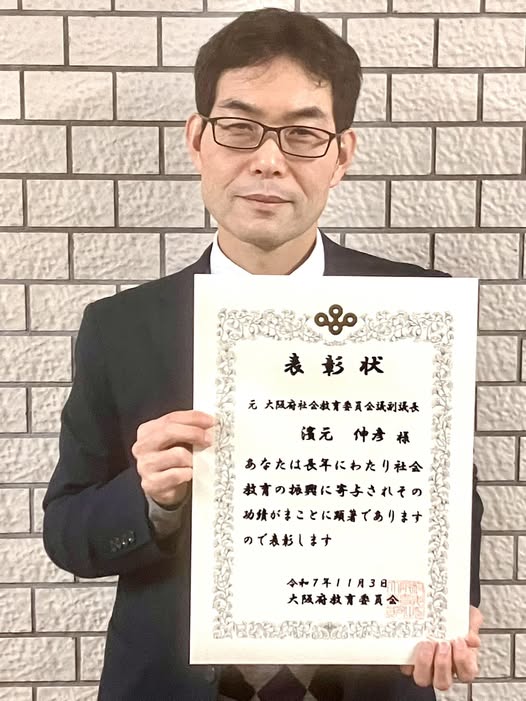 表彰状
元 大阪府社会教育委員会議副議長
濱元 伸彦 様
あなたは長年にわたり社会
教育の振興に寄与されその
功績がまことに顕著であります
ので表彰します
令和7年11月3日
大阪府教育委員会